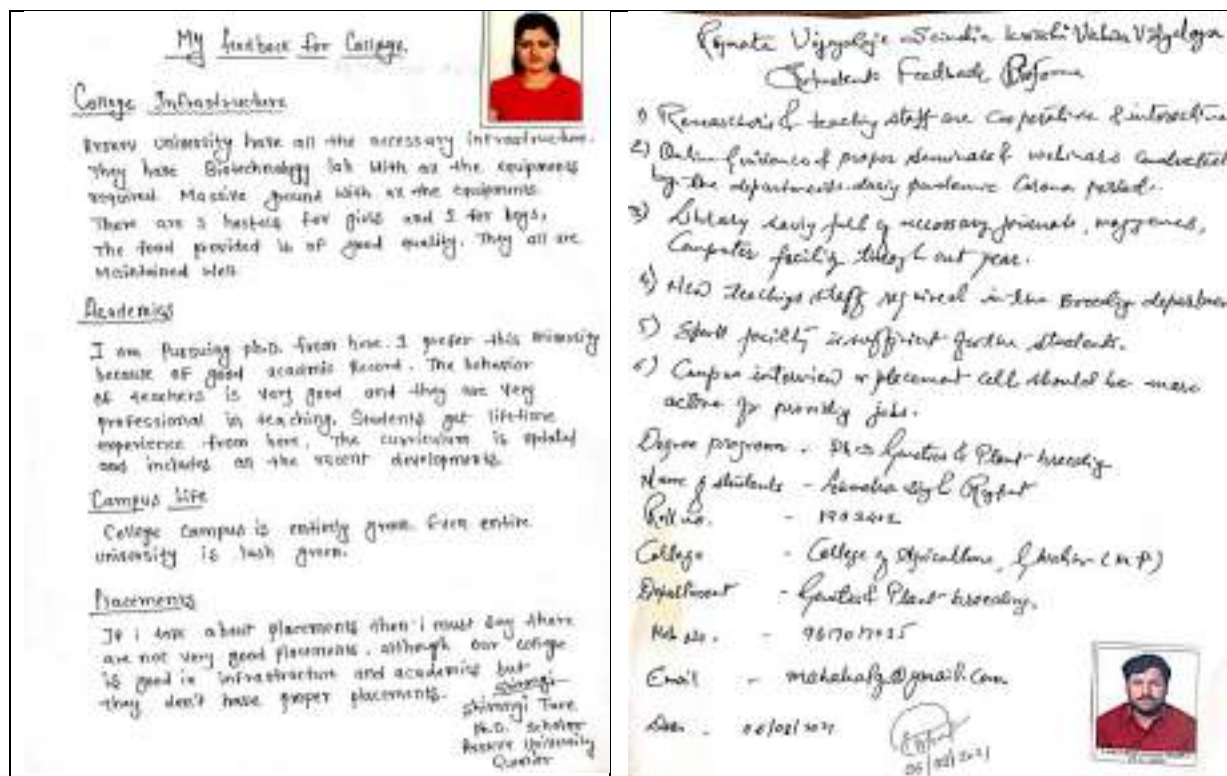 My feedback for College.
College Infrastructure
RVSKVV University have all the necessary infrastructure.
They have Biotechnology lab with all the equipments
required. Massive ground with all the equipments.
There are 3 hostels for girls and 2 for boys.
The food provided is of good quality. They all are
maintained well.
Academics
I am Pursuing ph.D. from here. I prefer this university
because of good academic Record. The behavior
of teachers is very good and they are very
professional in teaching. Students get life-time
experience from here. The curriculum is updated
and includes all the recent developments
Campus Life
College campus is entirely green. Even entire
university is lush green.
Placements
If i talk about placements then i must say there
are not very good placements. although our college
is good in infrastructure and academics but
they don't have proper placements.
Shivangi
Ph.D. Scholar
RVSKVV University
Gwalior
Rajmata Vijayaraje Scindia Krishi Vishwa Vidyalaya
Students Feedback Proforma
1) & teaching staff are cooperative & interactive
2) Online of proper seminars & webinars conducted
by the departments during pandemic Corona period.
3) Library having full of necessary journals, magzenes,
Computer facility through out year.
4) New teaching staff required in the Breeding department
5) Sport facility is sufficient for the students.
6) Campus interview or placement cell should be more
active for providing jobs.
Degree program - Ph.D Genetics & Plant breeding
Name of students - Singh Rajput
Roll no. -
College - College of Agriculture, Gwalior (M.P)
Department - Genetics & Plant breeding.
Mob No. -
Email - @gmail.com
Date -